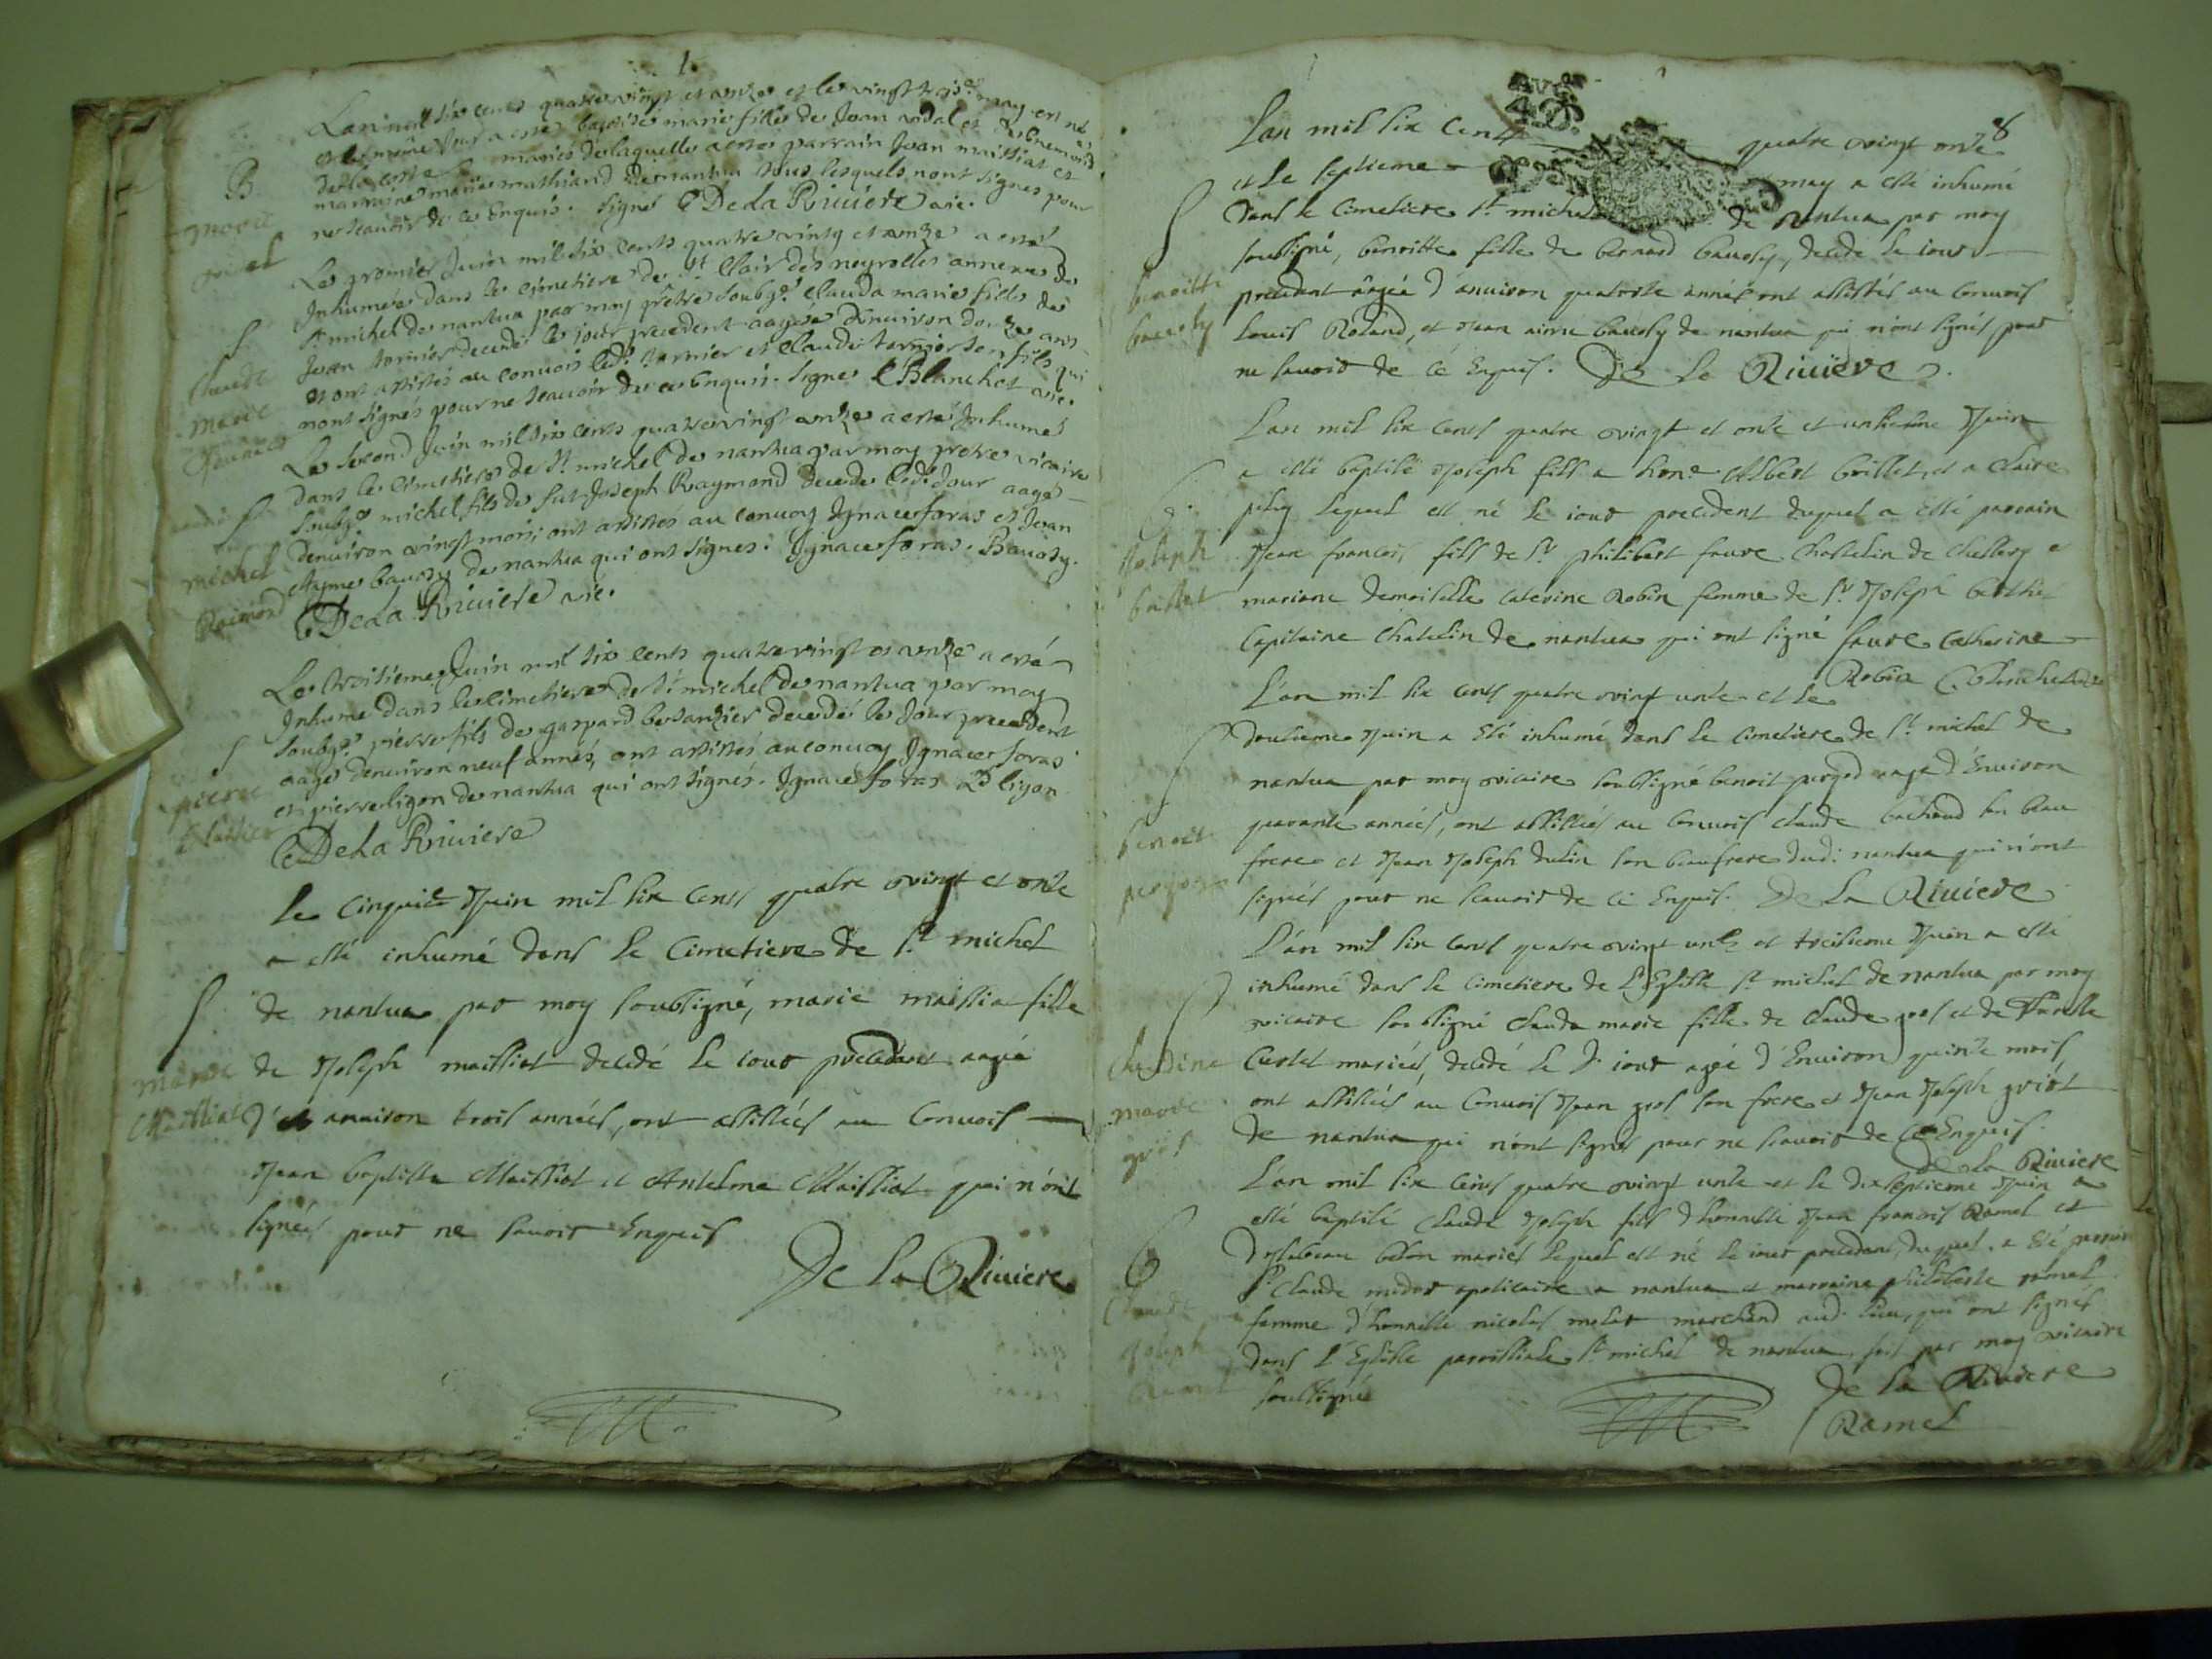 1.
Lan mil six cents quatre vingt et onze et le vingt may est né
et le même Jour a esté baptisé marie fille de Jean vidal et
mariés de laquelle a estés parrain Jean maissiat et
marraine marie mathiand de nantua tous lesquels nont signés pour
ne scauoir de ce Enquis. Signé C De la Riuiere vic.
B
marie
vidal
Le premier Juin mil six cents quatre vingt et onze a esté
Inhumée dans le cimetiere de st Clair des neyrolles annexe de
st michel de nantua par moy prêtre soubgé Clauda marie fille de
Jean tornier decedé le jour precedent aagée d'enuiron douze ans
et ont assistés au conuois led. tornier et claude tornier son fils qui
nont signés pour ne scauoir de ce Enquis. Signé C Blanchet vic.
S
Claude
marie
Le second Juin mil six cents quatre vingt onze a esté Inhumé
dans le cimetiere de St michel de nantua par moy prêtre vicaire
soubgé michel fils de fut Joseph Raymond decedé led. Jour aagé
denuiron vingt mois; ont assistés au conuoy Ignace foras et Jean
Ayme baudy de nantua qui ont signes. Ignace foras. Baudy.
C De La Riuiere vic.
S
michel
Raimond
Le troisieme Juin mil six cents quatre vingt et onze a esté
Inhumé dans le cimetiere de St michel de nantua par moy
soubgé pierre fils de gaspard decedé le Jour precedent
aagé denuiron neuf année, ont assistés au conuoy Ignace foras
et pierre ligon de nantua qui ont signés. Ignace foras P ligon
C De La Riuiere
S
pierre
le cinquie Juin mil six cents quatre vingt et onze
a esté inhumé dans le cimetiere de St michel
de nantua par moy soubsigné, marie maissia fille
de Joseph maissiat decedé le iour precedant aagée
d' anuiron trois années, ont assistées au Conuois
Jean baptiste Maissiat et Antelme Maissiat qui n'ont
signés pour ne sauoir Enquis
De La Riuiere
S
marie
Maissiat
8
Lan mil six Cents quatre vingt onze
et le septieme may a esté inhumé
dans le Cimetiere St michel de Nantua par moy
soubsigné, benoitte fille de bernard baudy, decedé le iour
precedant aagée d'anuiron quatorze années ont assistés au Conuois
Louis Roland, et Jean aime baudy de nantua qui n'ont signés pour
ne sauoir de ce Enquis. De La Riuiere
S
benoitte
baudy
Lan mil six cents quatre vingt et onze et unsieme Juin
a esté baptisé Joseph fils a hone Albert brillet, et a Claire
lequel est né le iour precedent duquel a esté parrain
Jean francois fils de Sr philibert faure Chastelin de et
mariane demoiselle Caterine Robin femme de Sr Joseph
Capitaine Chatelin de nantua qui ont signé faure Catherine
Robin C. Blanchet
B.
Joseph
brillet
L'an mil six cents quatre vingt unze et le
douzieme Juin a eté inhumé dans le Cimetiere de St michel de
nantua par moy vicaire soubsigné benoit aagé d'Enuiron
quarante années, ont assistés au Conuois Claude bachod son beau
frere et Jean Joseph dulin son beaufrere dudt nantua qui n'ont
signés pour ne scauoir de ce Enquis. De La Riuiere
S
benoit
L'an mil six cents quatre vingt unze et treizieme Juin a esté
inhumé dans le Cimetiere de l'Eglise St michel de nantua par moy
vicaire soubsigné Claude marie fille de Claude gros et de
mariées, decedé le dt iour agée d'Enuiron quinze mois,
ont assistées au Conuois Jean gros son frere et Jean Joseph
de nantua qui n'ont signés pour ne scauoir de Ce Enquis.
De la Riuiere
S
Claudine
marie
gros
L'an mil six cents quatre vingt unze et le dixseptieme Juin a
esté baptisé Claude Joseph fils d'honneste Jean francois Ramel et
mariés lequel est né le iour precedant, duquel a eté parrain
Sr Claude apoticaire a nantua et marraine philiberte ramel
femme d'honneste nicolas molet marchand aud. lieu, qui ont signés
dans l'Eglise parroissiale St michel de nantua fait par moy vicaire
soubsigné
De la Riuiere
Ramel
B
Claude
Joseph
Ramel